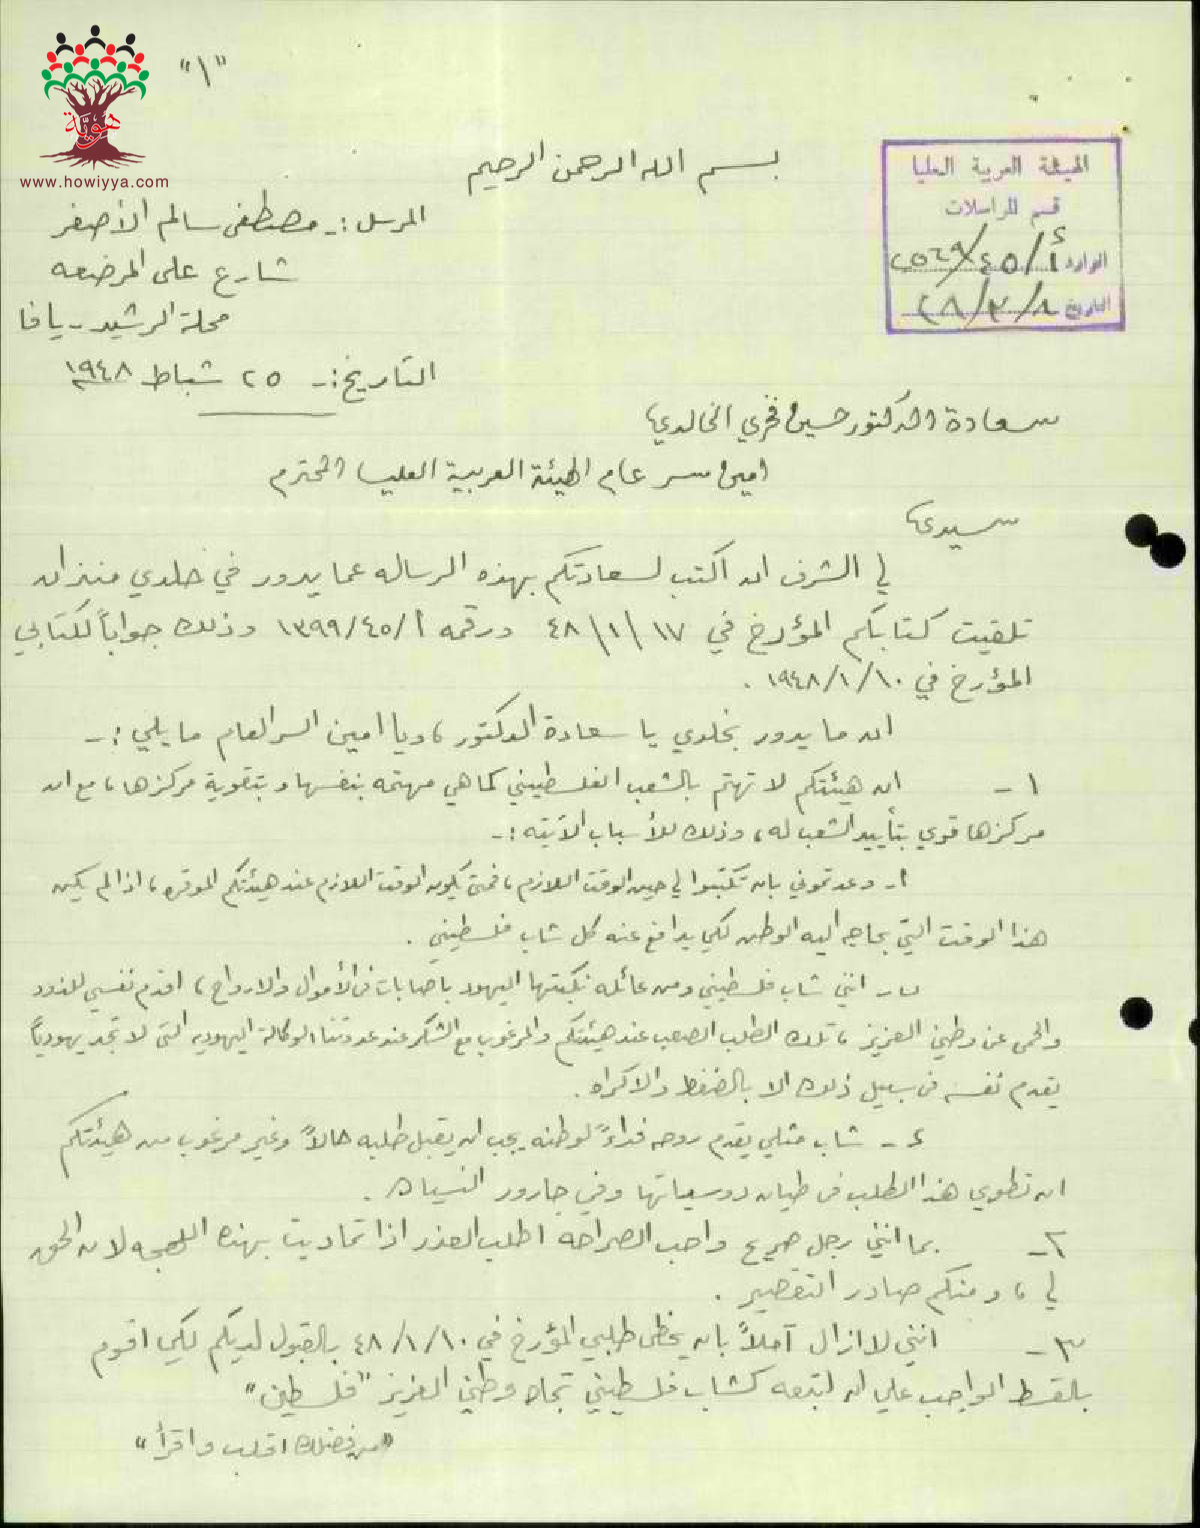 "١"
هوية
www.howiyya.com
بسم الله الرحمن الرحيم
الهيئة العربية العليا
قسم المراسلات
الوارد أ/٤٥/٢٥٦٩
التاريخ ٨/٣/٤٨
المرسل :- مصطفى سالم الأصفر
شارع على المرضعه
محلة الرشيد - يافا
التاريخ :- ٢٥ شباط ١٩٤٨
سعادة الدكتور حسين فخري الخالدي
امين سر عام الهيئة العربية العليا المحترم
سيدي
لي الشرف ان اكتب لسعادتكم بهذه الرساله عما يدور في خلدي منذ ان
تلقيت كتابكم المؤرخ في ١٧/١/٤٨ ورقمه أ/٤٥/١٣٩٩ وذلك جواباً لكتابي
المؤرخ في ١٠/١/١٩٤٨ .
ان ما يدور بخلدي يا سعادة الدكتور ، ويا امين السر العام ما يلي :-
١ - ان هيئتكم لا تهتم بالشعب الفلسطيني كما هي مهتمه بنفسها وبتقوية مركزها ، مع ان
مركزها قوي بتأييد الشعب له ، وذلك للأسباب الآتيه :-
أ- وعدتموني بان تكتبوا لي حين الوقت اللازم ، فمتى يكون الوقت اللازم عند هيئتكم الموقره ، اذا لم يكن
هذا الوقت التي بحاجه اليه الوطن لكي يدافع عنه كل شاب فلسطيني .
ب- انني شاب فلسطيني ومن عائله نكبتها اليهود باصابات في الأموال والارواح ، اقدم نفسي للذود
والحمى عن وطني العزيز ، تلك الطلب الصعب عند هيئتكم والمرغوب مع الشكر عند عدوتنا الوكالة اليهوديه التي لا تجد يهودياً
يقدم نفسه في سبيل ذلك الا بالضغط والاكراه .
ء - شاب مثلي يقدم روحه فداءً لوطنه يجب ان يقبل طلبه حالاً وغير مرغوب من هيئتكم
ان تطوي هذا الطلب في طيان دوسياتها وفي جارور النسيان .
٢ - بما انني رجل صريح واحب الصراحه اطلب العذر اذا تماديت بهذه اللهجه لان الحق
لي ، ومنكم صادر التقصير .
٣ - انني لا ازال آملاً بان يحظى طلبي المؤرخ في ١٠/١/٤٨ بالقبول لديكم لكي اقوم
بالقسط الواجب علي ان ابتعه كشاب فلسطيني تجاه وطني العزيز "فلسطين"
"من فضلك اقلب واقرأ"